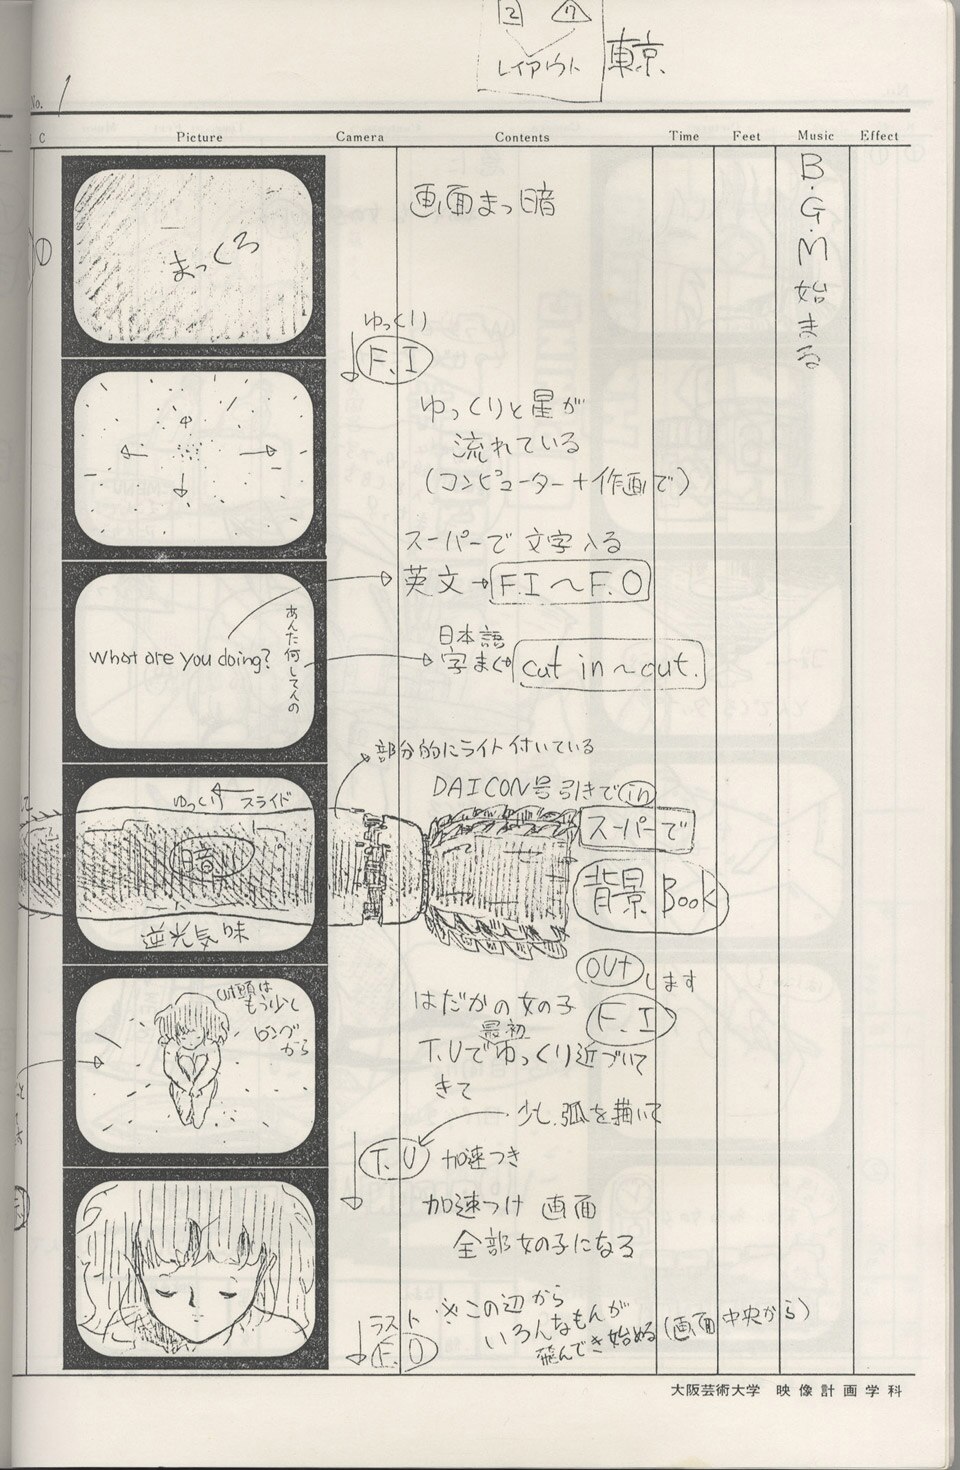 2 ウ
レイアウト
東京
No. 1
C Picture Camera Contents Time Feet Music Effect
①
まっくろ
画面まっ暗
B.G.M始まる
ゆっくり
F.I
ゆっくりと星が
流れている
(コンピューター+作画で)
スーパーで文字入る
英文→F.I〜F.O
What are you doing?
あんた何してんの
日本語
字まく→cut in〜out.
部分的にライト付いている
ゆっくり←スライド
暗い
逆光気味
DAICON号引きでin
スーパーで
背景Book
outします
cut頭は
もう少し
ロングから
はだかの女の子 F.I
最初
T.Uでゆっくり近づいて
きて
少し弧を描いて
T.U 加速つき
加速つけ 画面
全部女の子になる
ラスト
F.O
※この辺から
いろんなもんが
飛んでき始める(画面中央から)
大阪芸術大学 映像計画学科